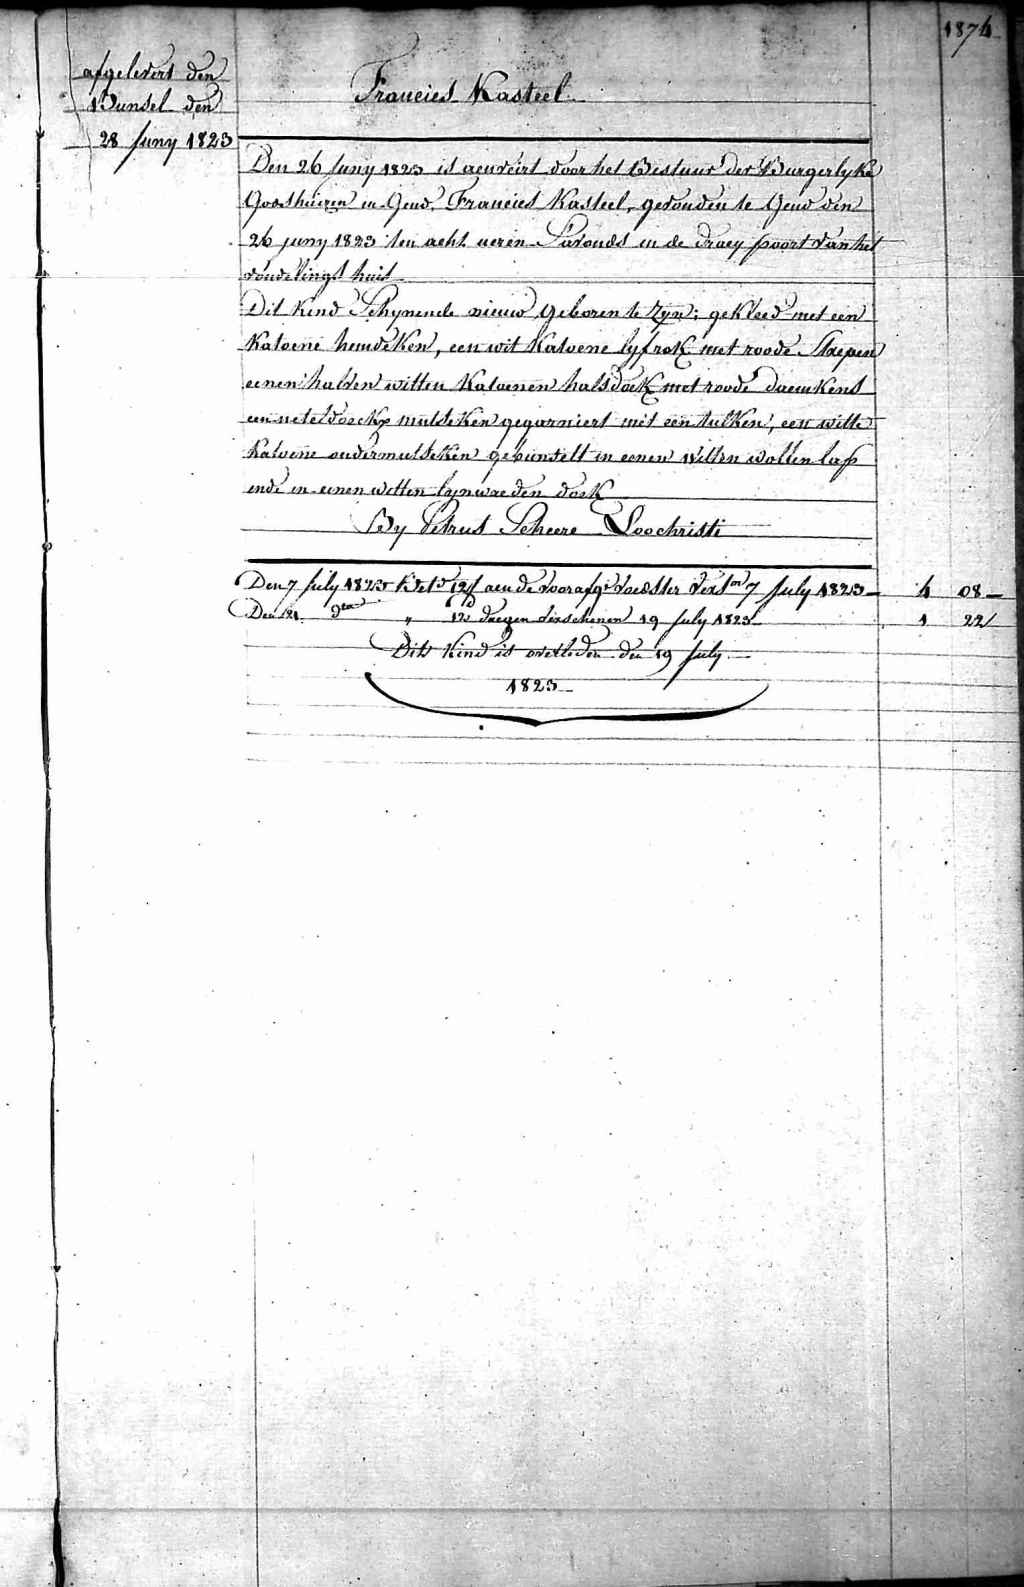 1874
afgelevert den
Bunsel den
28 Juny 1823
Francies Kasteel
Den 26 Juny 1823 is aenveirt door het Bestuur der Burgerlyke
Godshuizen in Gend, Francies Kasteel, gevonden te Gend den
26 juny 1823 ten acht ueren S'avonds in de draey poort van het
vondelings huis
Dit Kind Schynende nieuw geboren te zyn; gekleed met een
Katoene hemdeken, een wit Katoene lyfrok met roode Strepen
eenen halven witten Katoenen halsdoek met roode daemkens
een neteldoeckx mutseken gegarniert met een tulken, een witte
Katoene ondermutseken gebunselt in eenen witten wollen lap
ende in eenen witten lynwaeden doek
By Petrus Scheere Loochristi
Den 7 July 1823 Bet.d 12 f aen de voorafg.e voedster vers.en 7 July 1823 4 08
Den 21 d.to " 12 daegen verschenen 19 July 1823 1 22
Dit Kind is overleden den 19 July
1823